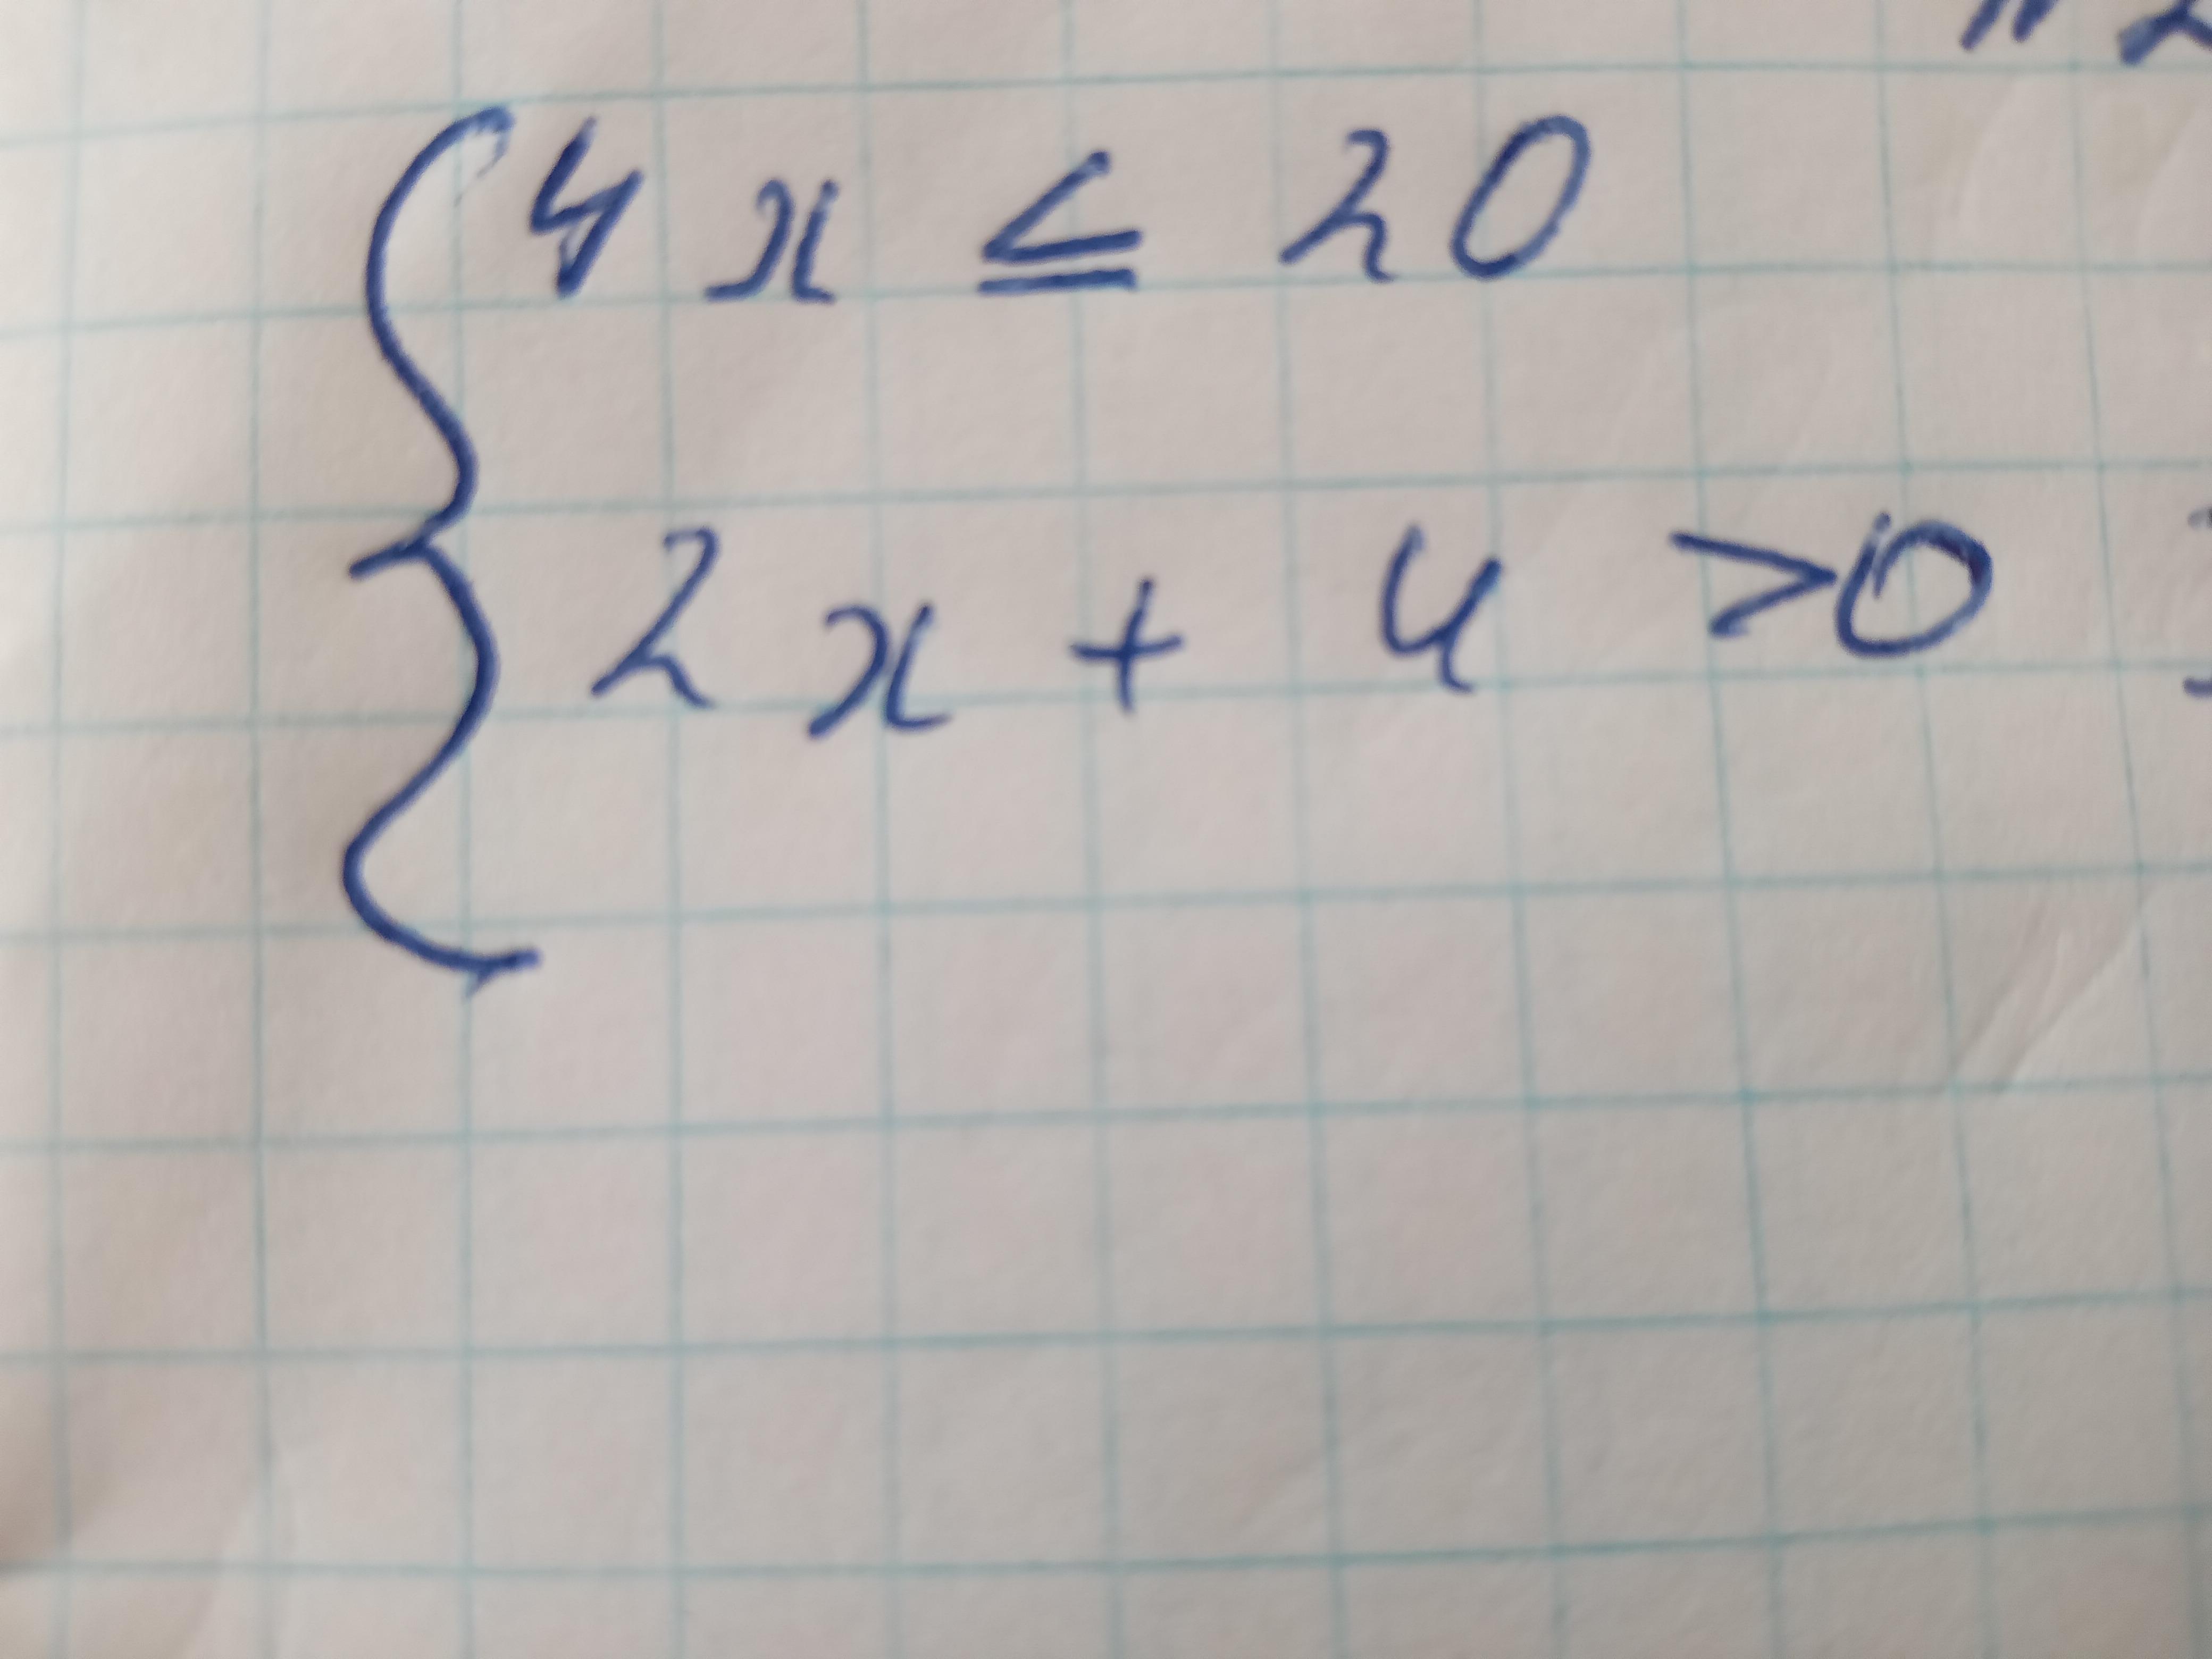 4x ≤ 20
2x + 4 > 0